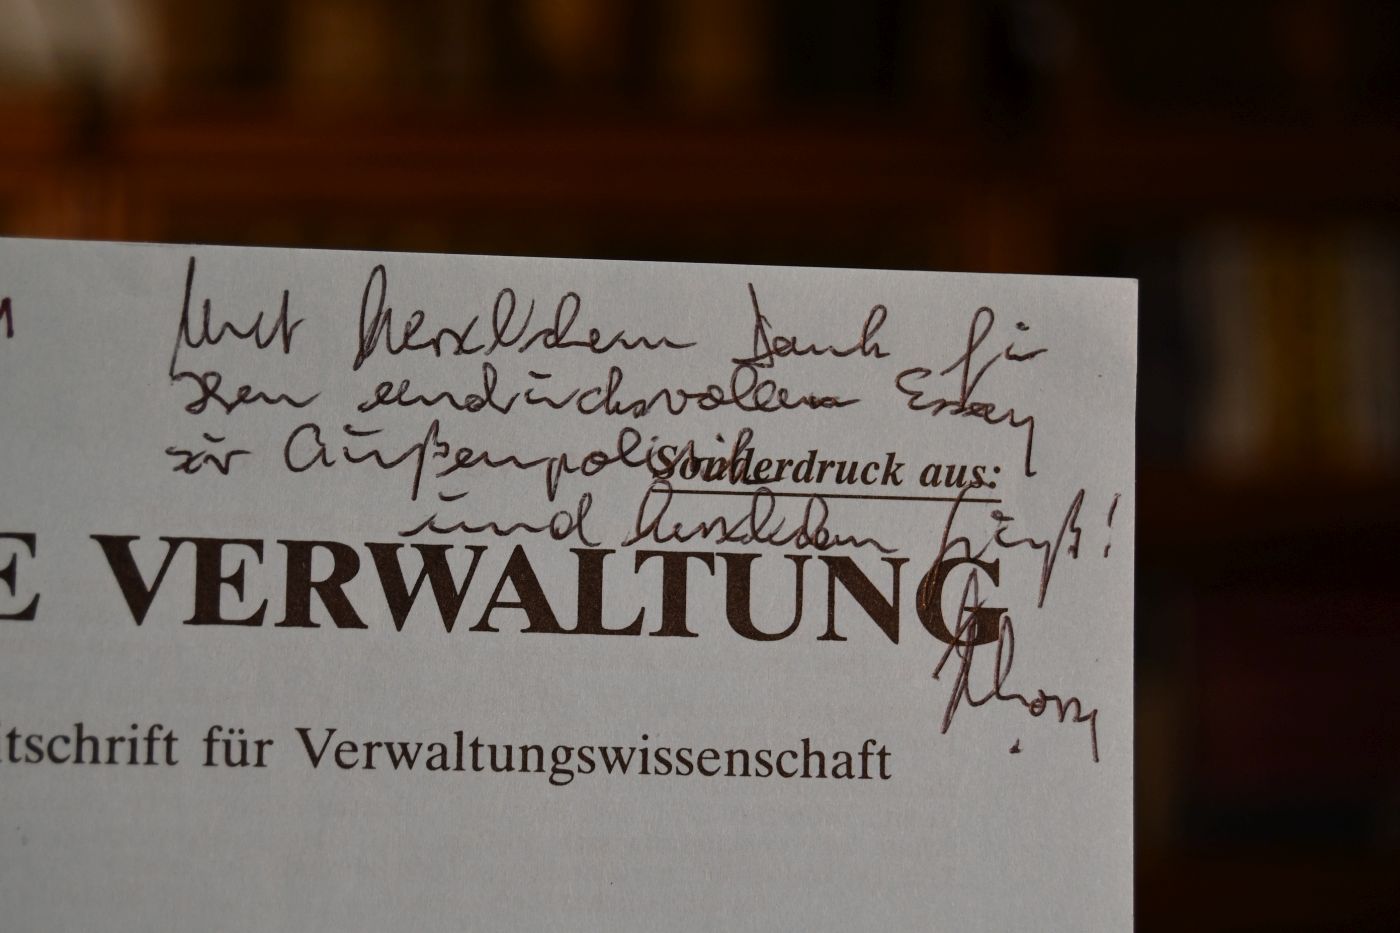 Mit herzlichem Dank für
den eindrucksvollen Essay
zur Außenpolitik
Sonderdruck aus:
und herzlichem Gruß!
E VERWALTUNG
itschrift für Verwaltungswissenschaft